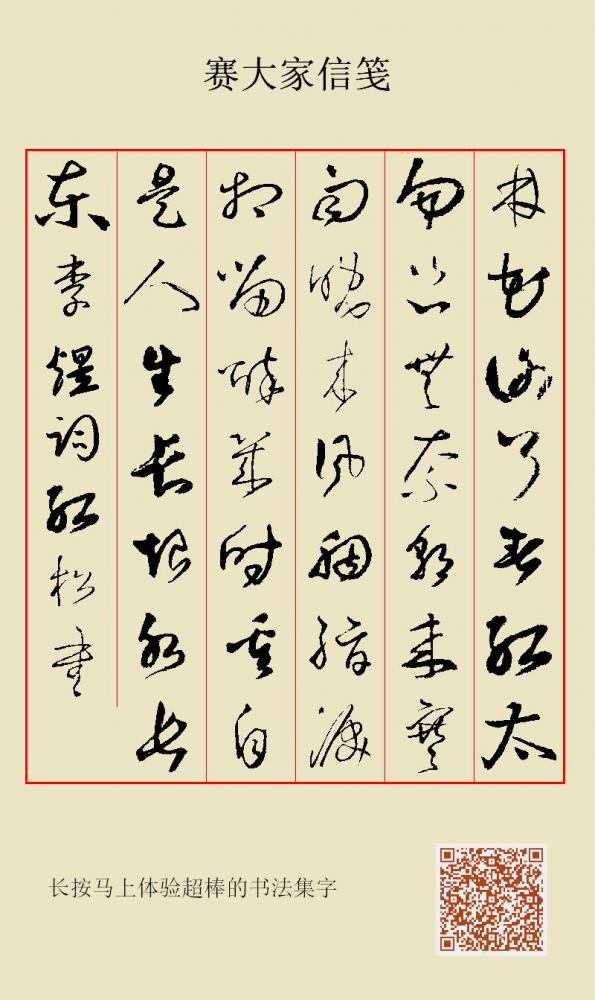 赛大家信笺
林花谢了春红太
匆匆无奈朝来寒
雨晚来风胭脂泪
相留醉几时重自
是人生长恨水长
东李煜词红松书
长按马上体验超棒的书法集字